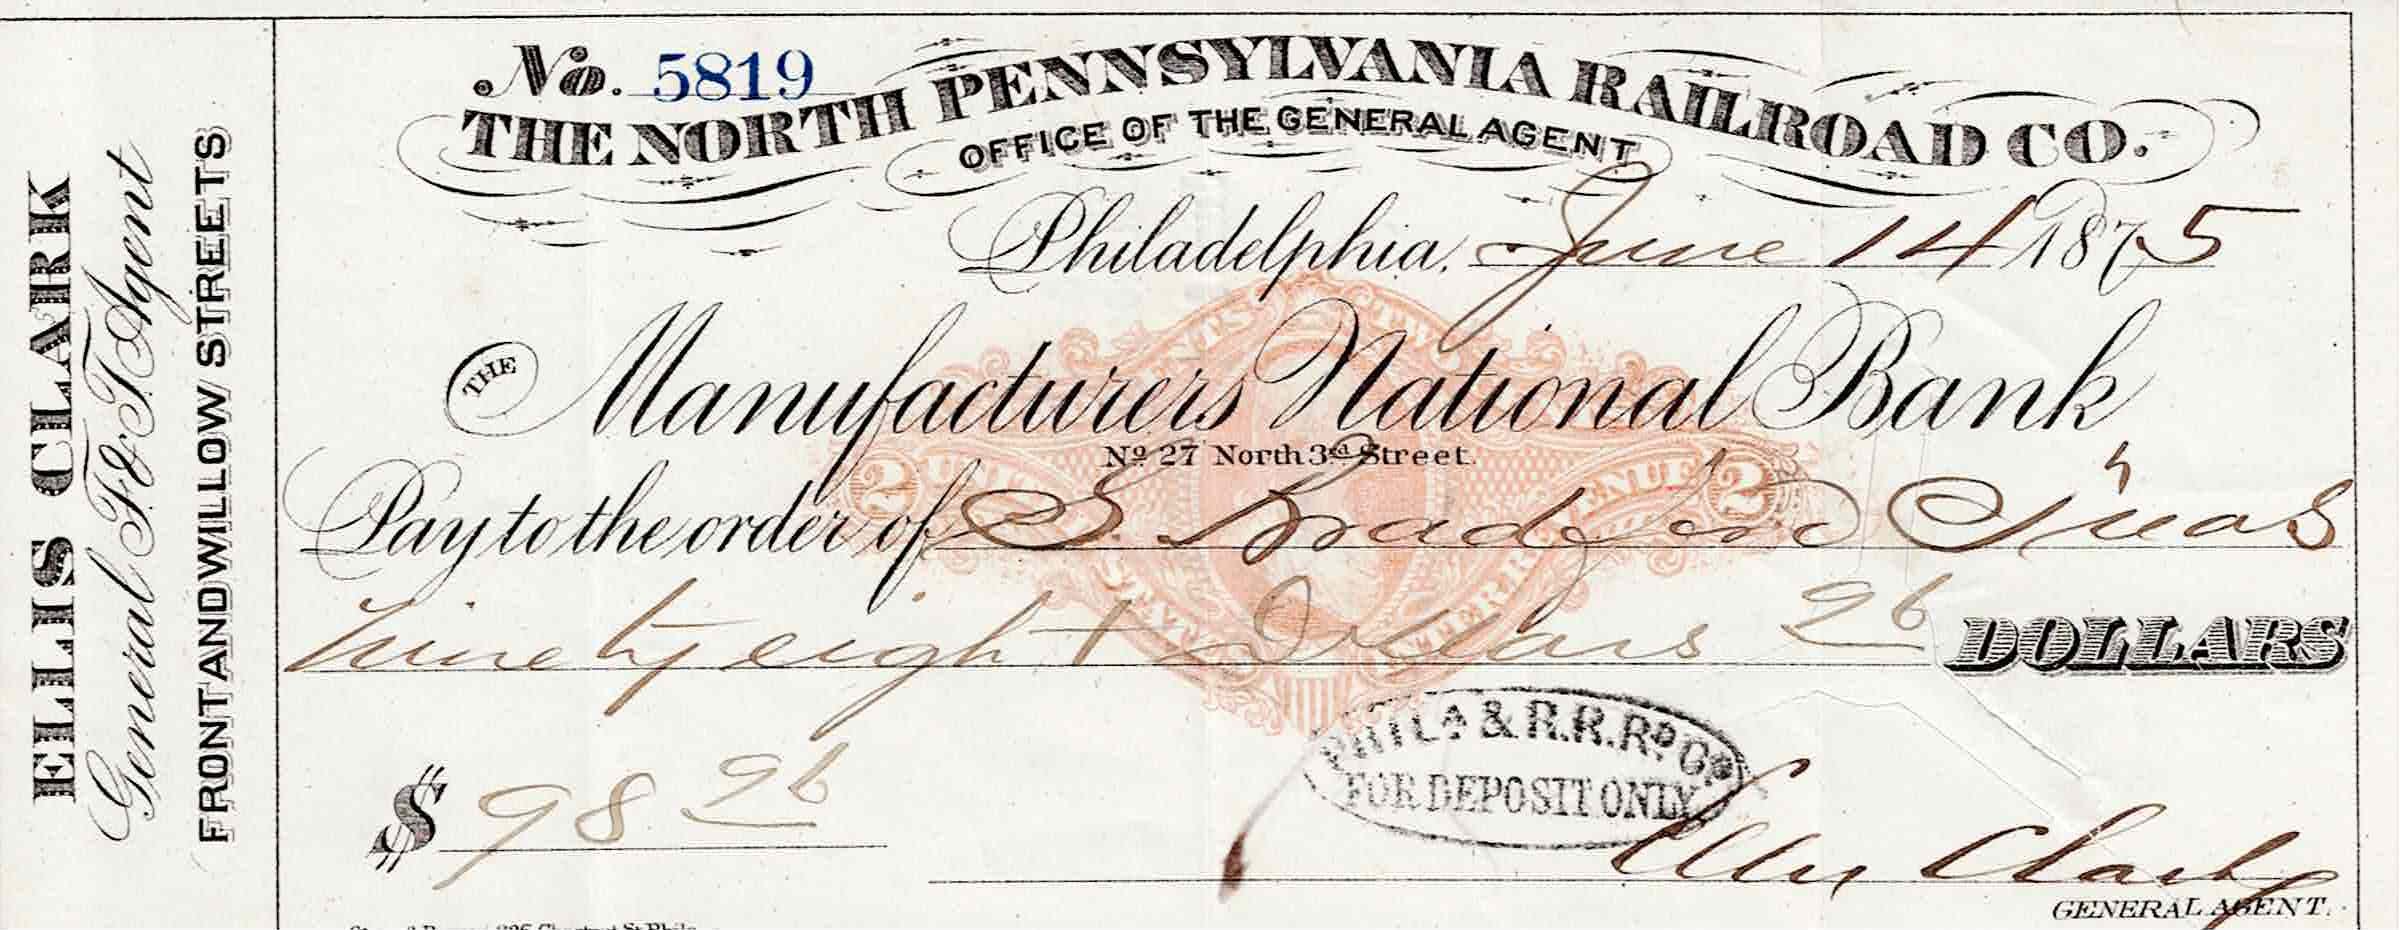 No. 5819
THE NORTH PENNSYLVANIA RAILROAD CO.
OFFICE OF THE GENERAL AGENT
Philadelphia, June 14 1875
THE Manufacturers National Bank
No 27 North 3rd Street.
Pay to the order of S. Bradford Treas
Ninety eight Dollars 96 DOLLARS
$ 98 96
PHILA & R.R.RD Co.
FOR DEPOSIT ONLY
Ellis Clark
GENERAL AGENT.
ELLIS CLARK
General F. & T. Agent
FRONT AND WILLOW STREETS
2 UNITED STATES INTERNAL REVENUE 2
TWO CENTS
Chestnut St. Phila.